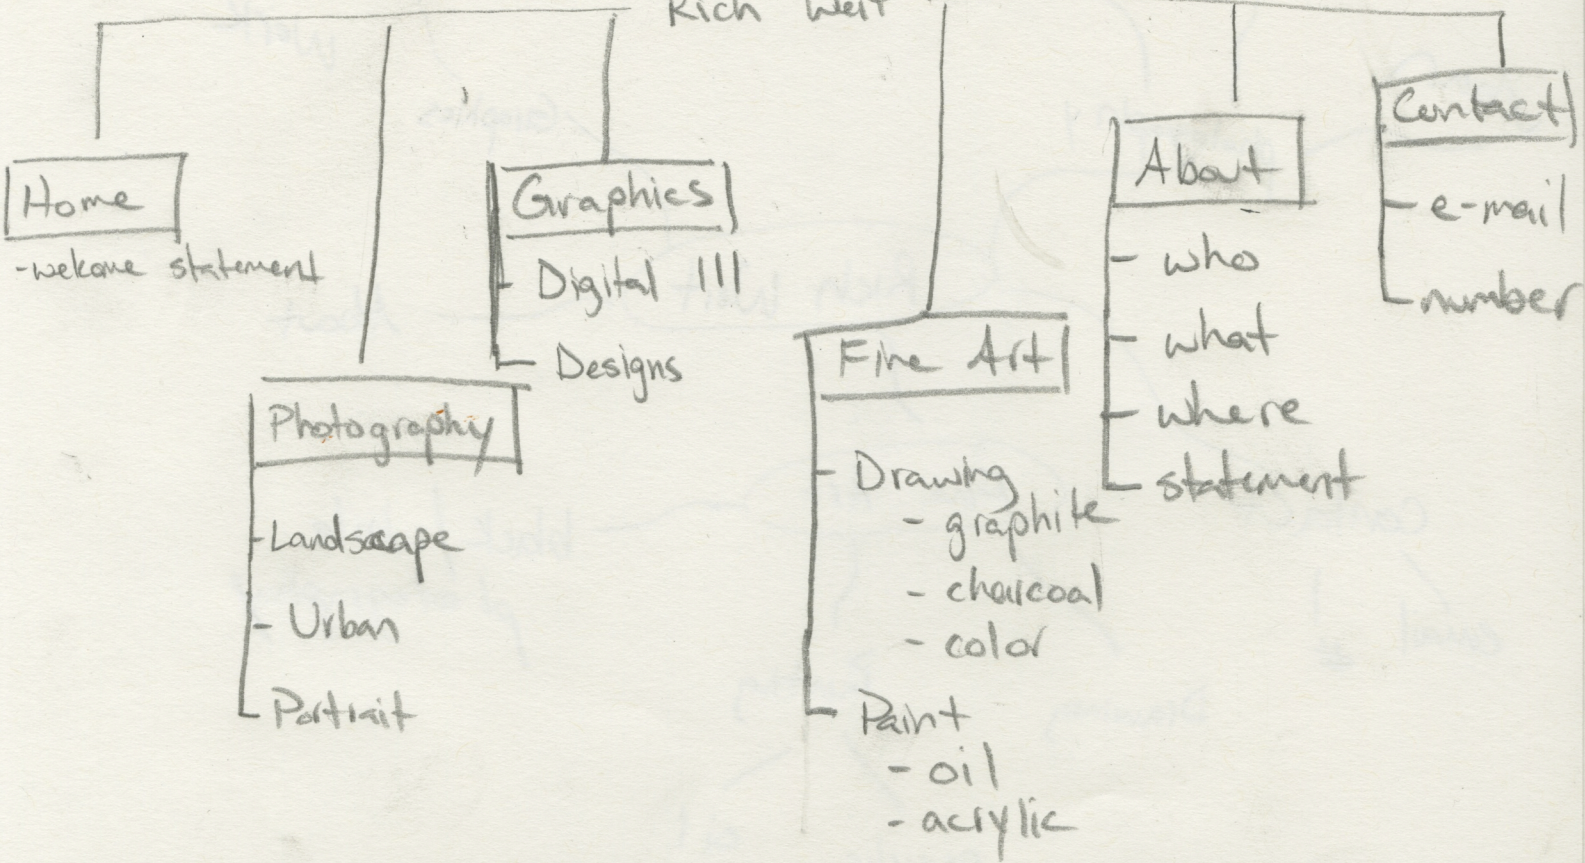 Rich Weit
Home
-welcome statement
Photography
-Landscape
- Urban
- Portrait
Graphics
- Digital III
- Designs
Fine Art
- Drawing
- graphite
- charcoal
- color
- Paint
- oil
- acrylic
About
- who
- what
- where
- statement
Contact
- e-mail
- number